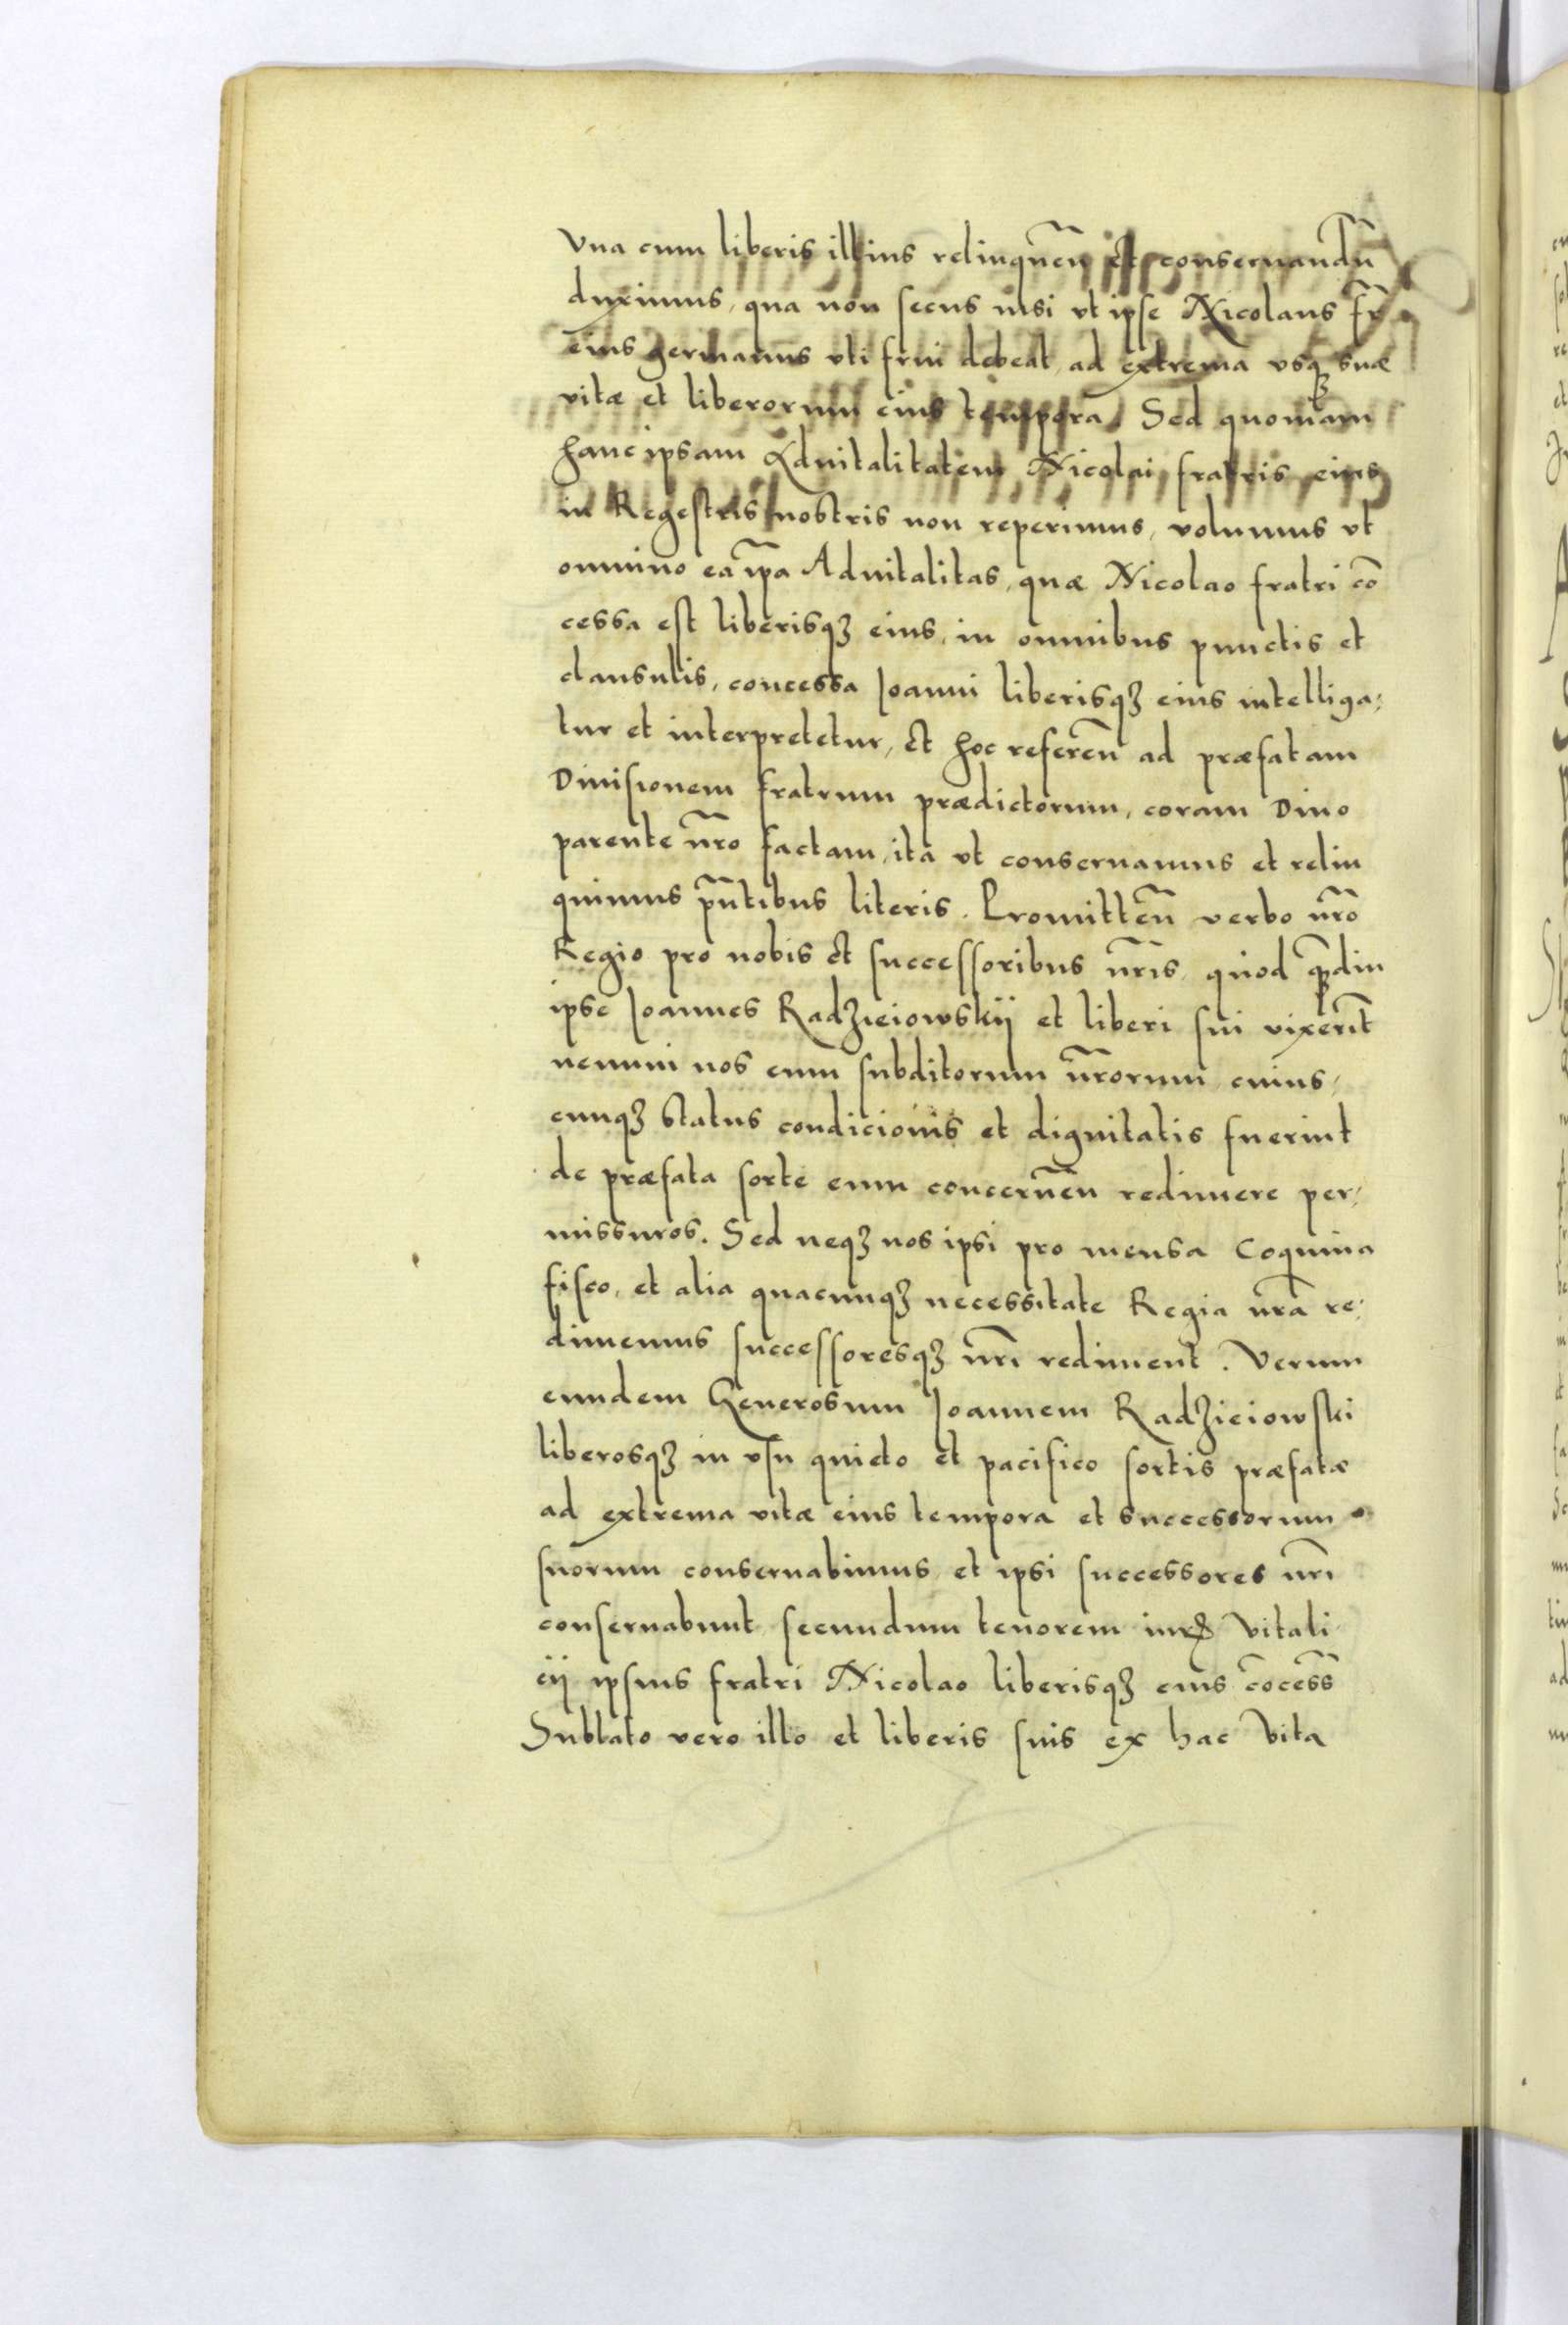 Vna cum liberis illius relinquen̄ et conseruandū
duximus, qua non secus nisi vt ipse Nicolaus fr̄
eius germanus vti frui debeat, ad extrema vsqꝫ suæ
vitæ et liberorum eius tempora, Sed quoniam
hanc ipsam Aduitalitatem Nicolai fratris eius
in Regestris nostris non reperimus, volumus vt
omnino ea ip̄a Aduitalitas, quæ Nicolao fratri cō
cessa est liberisqꝫ eius, in omnibus punctis et
clausulis, concessa Ioanni liberisqꝫ eius intelliga,
tur et interpretetur, et hoc referen̄ ad præfatam
Diuisionem fratrum prædictorum, coram Diuo
parente nr̄o factam, ita vt conseruamus et relin
quimus pn̄tibus literis. Promitten̄ verbo nr̄o
Regio pro nobis et successoribus nr̄is, quod qꝫdiu
ipse Ioannes Radzieiowskÿ et liberi sui vixerīt
nemini nos eum subditorum nr̄orum, cuius,
cunqꝫ status condicionis et dignitatis fuerint
de præfata sorte eum concernen̄ redimere per,
missuros. Sed neqꝫ nos ipsi pro mensa Coquina
fisco, et alia quacunqꝫ necessitate Regia nr̄a re,
dimemus successoresqꝫ nr̄i rediment. Verum
eundem Generosum Ioannem Radzieiowski
liberosqꝫ in vsu quieto et pacifico sortis præfatæ
ad extrema vitæ eius tempora et successorum
suorum conseruabimus, et ipsi successores nr̄i
conseruabunt secundum tenorem iurꝭ Vitali
cÿ ipsius fratri Nicolao liberisqꝫ eius cōcess̄
Sublato vero illo et liberis suis ex hac Vita